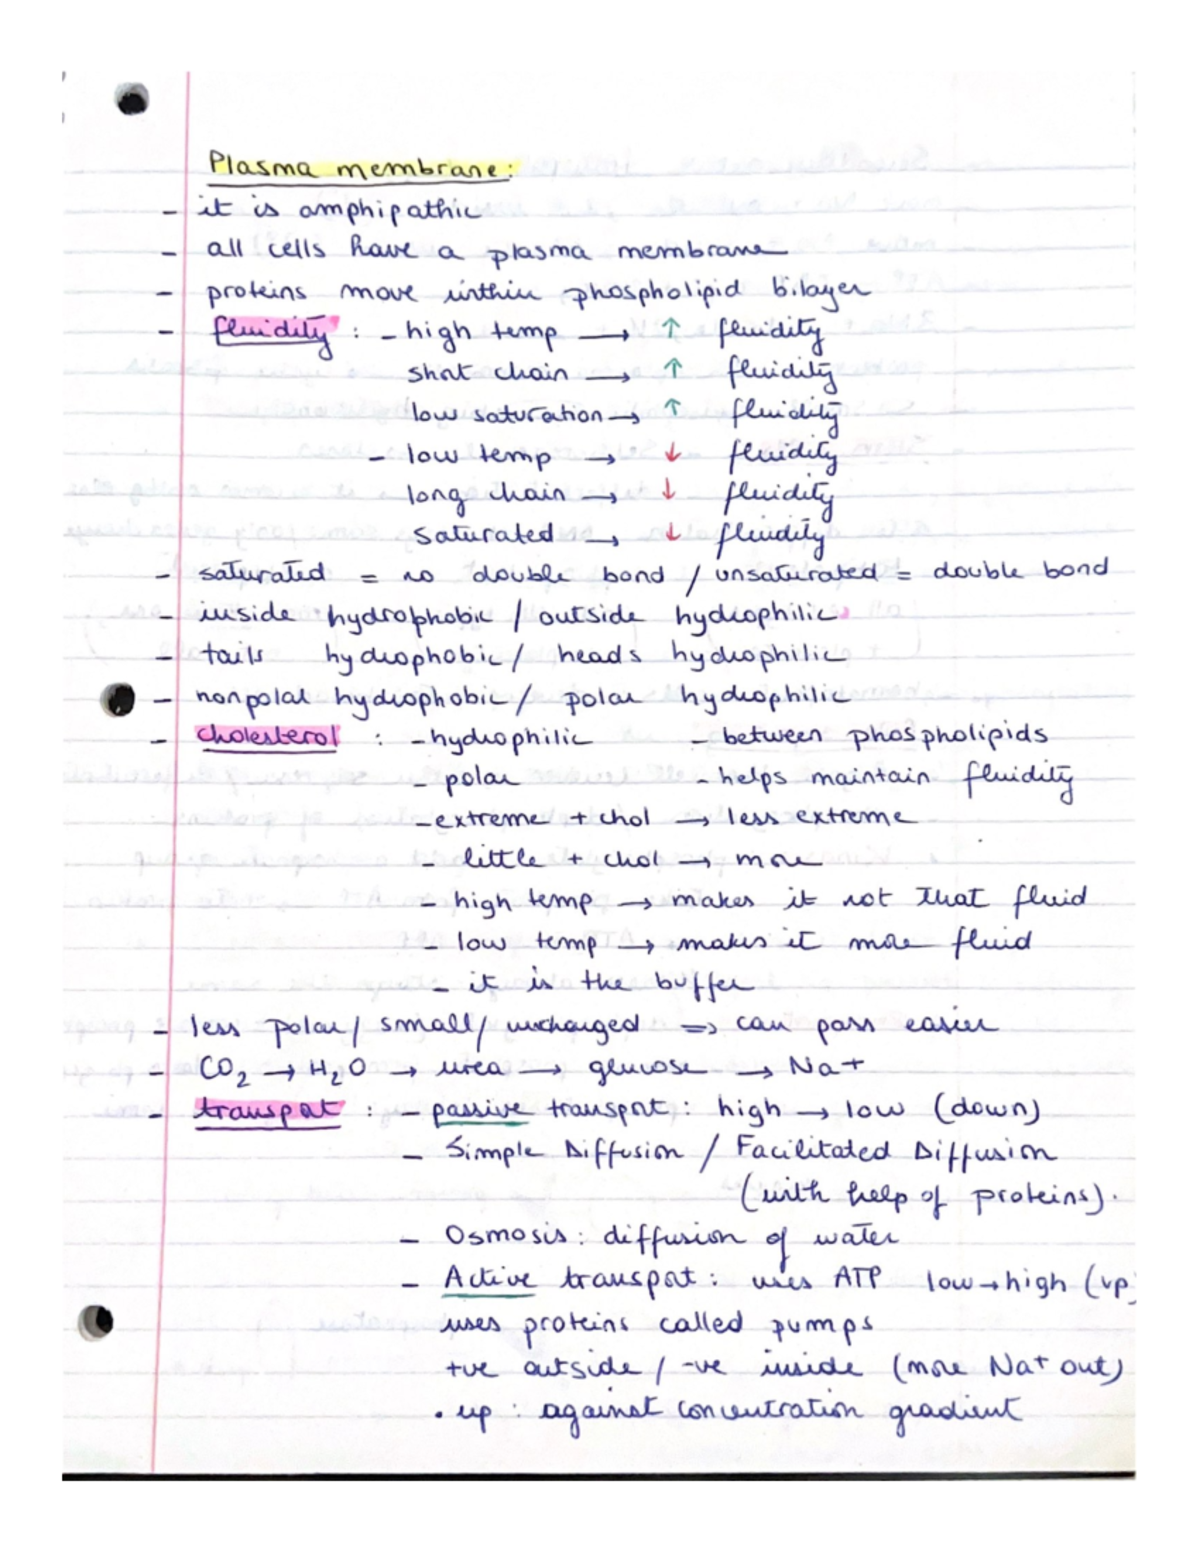 Plasma membrane:
- it is amphipathic
- all cells have a plasma membrane
- proteins move within phospholipid bilayer
- fluidity : - high temp → ↑ fluidity
short chain → ↑ fluidity
low saturation → ↑ fluidity
- low temp → ↓ fluidity
long chain → ↓ fluidity
saturated → ↓ fluidity
- saturated = no double bond / unsaturated = double bond
- inside hydrophobic / outside hydrophilic
- tails hydrophobic / heads hydrophilic
- nonpolar hydrophobic / polar hydrophilic
- cholesterol : - hydrophilic - between phospholipids
- polar - helps maintain fluidity
- extreme + chol → less extreme
- little + chol → more
- high temp → makes it not that fluid
- low temp → makes it more fluid
- it is the buffer
- less polar / small / uncharged => can pass easier
- CO2 → H2O → urea → glucose → Na+
- transport : - passive transport : high → low (down)
- Simple Diffusion / Facilitated Diffusion
(with help of proteins).
- Osmosis : diffusion of water
- Active transport : uses ATP low → high (up)
uses proteins called pumps
+ve outside / -ve inside (more Na+ out)
• up : against concentration gradient